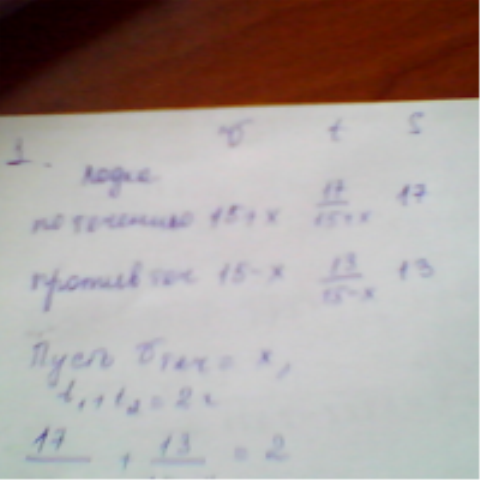 1. v t S
лодка
по течению 15+x 17/15+x 17
против теч 15-x 13/15-x 13
Пусть v теч = x,
t₁+t₂=2ч
17 + 13 = 2